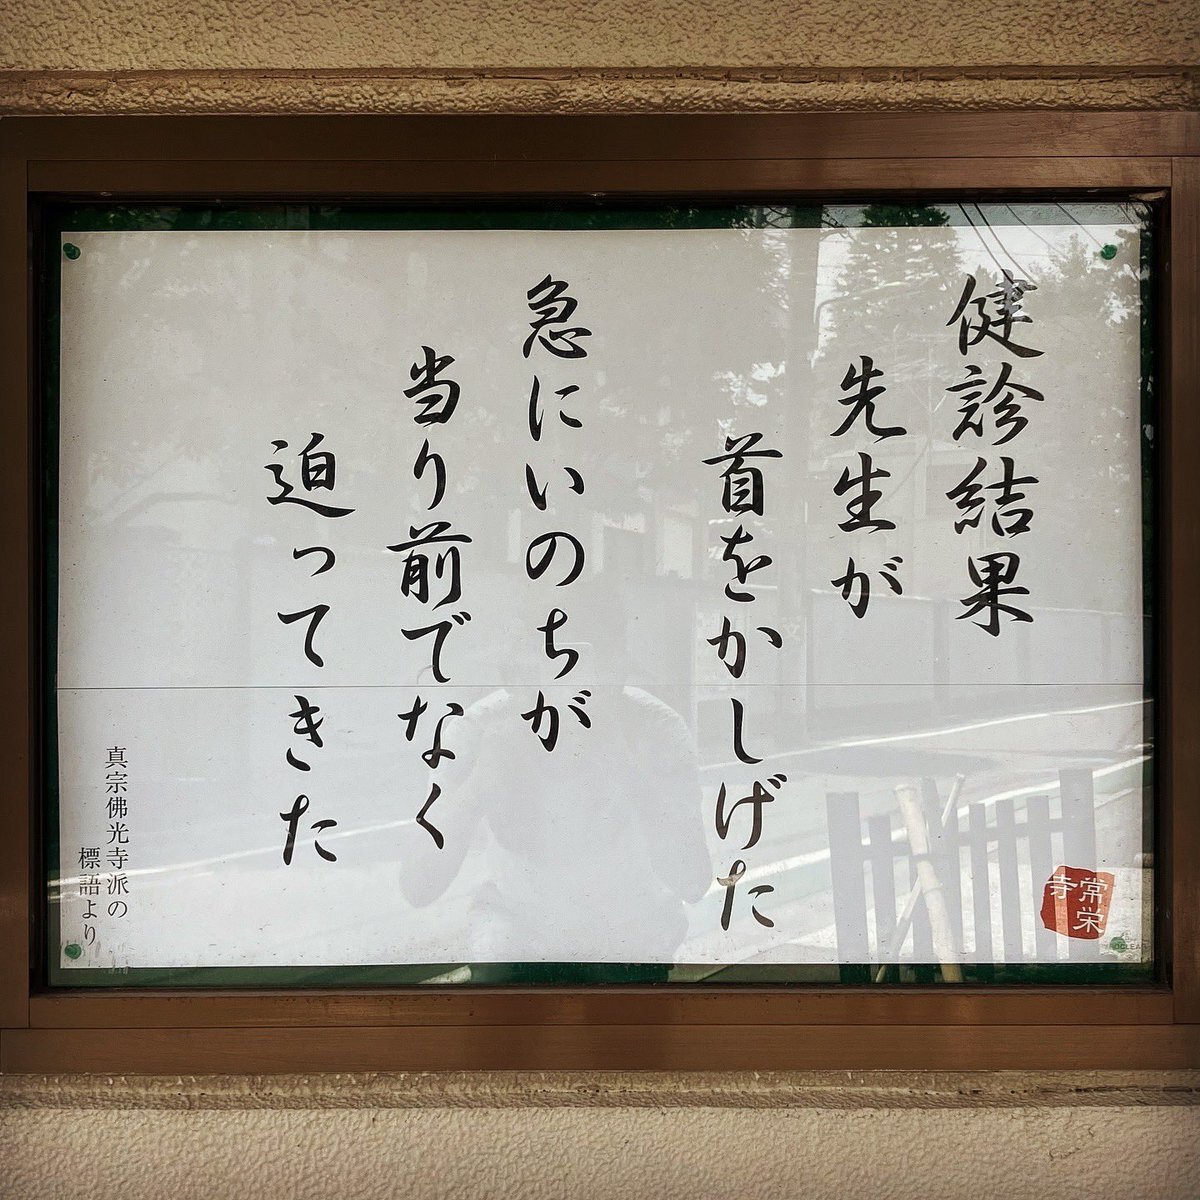 健診結果
先生が
首をかしげた
急にいのちが
当り前でなく
迫ってきた
真宗佛光寺派の
標語より
常栄
寺